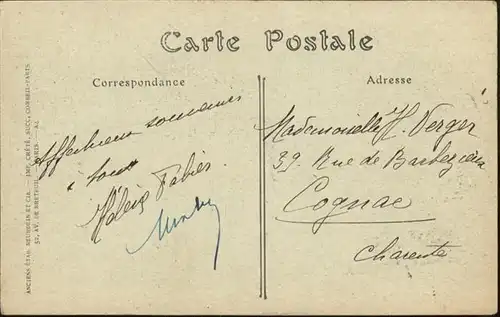 Carte Postale
Correspondance
Affectueux souvenirs
à tous
Hélène Fabier
Adresse
Mademoiselle H. Verger
39 Rue de Barbezieux
Cognac
Charente
ANCIENS ETAB. NEURDEIN ET CIE. — IMP. CRÉTÉ, SUCC. CORBEIL-PARIS.
52, AV. DE BRETEUIL — PARIS